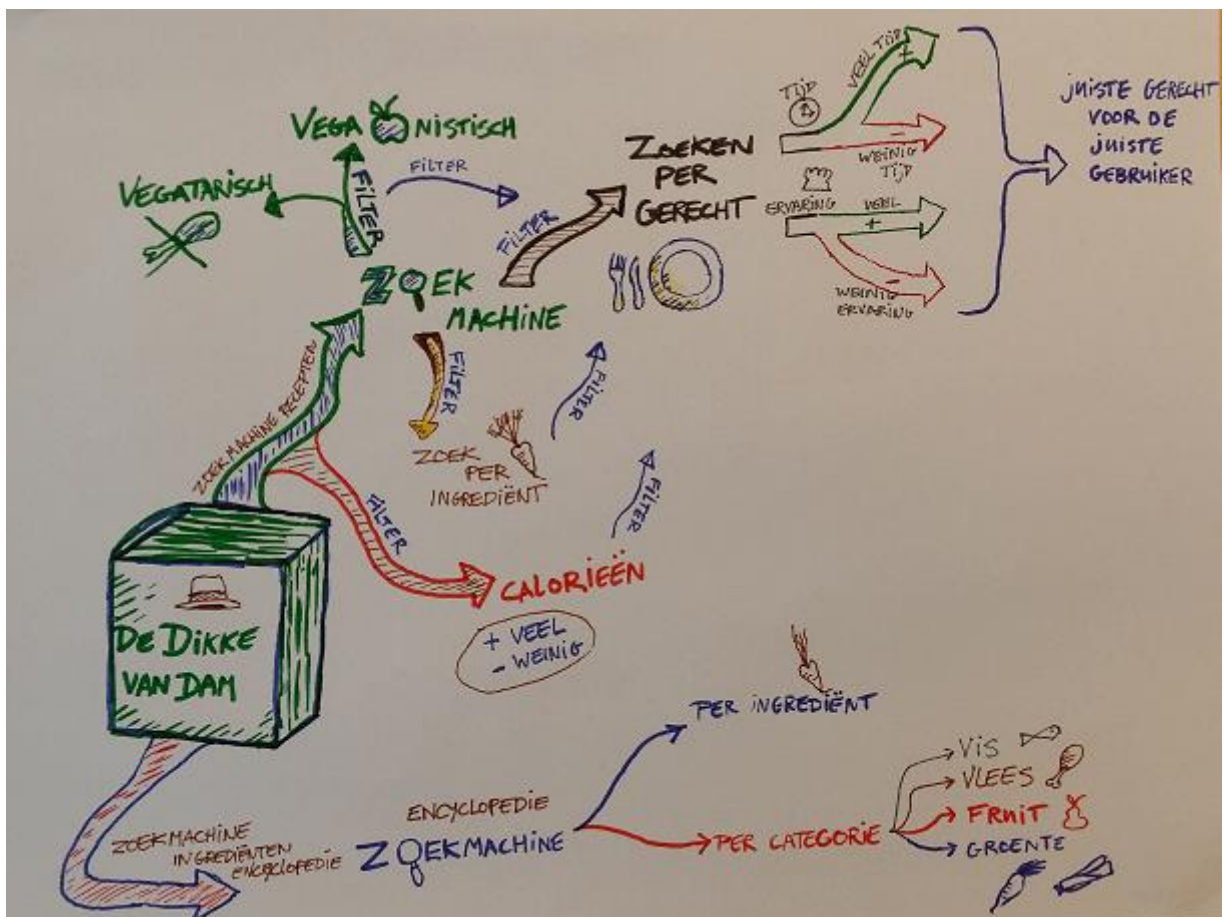 VEGA NISTISCH
FILTER
VEGATARISCH
FILTER
ZOEK
MACHINE
FILTER
ZOEKEN
PER
GERECHT
TIJD
VEEL TIJD
+
-
WEINIG
TIJD
ERVARING
VEEL
+
-
WEINIG
ERVARING
JUISTE GERECHT
VOOR DE
JUISTE
GEBRUIKER
ZOEKMACHINE RECEPTEN
FILTER
ZOEK
PER
INGREDIËNT
FILTER
FILTER
FILTER
CALORIEËN
+ VEEL
- WEINIG
DE DIKKE
VAN DAM
ZOEKMACHINE
INGREDIËNTEN
ENCYCLOPEDIE
ENCYCLOPEDIE
ZOEKMACHINE
PER INGREDIËNT
PER CATEGORIE
VIS
VLEES
FRUIT
GROENTE